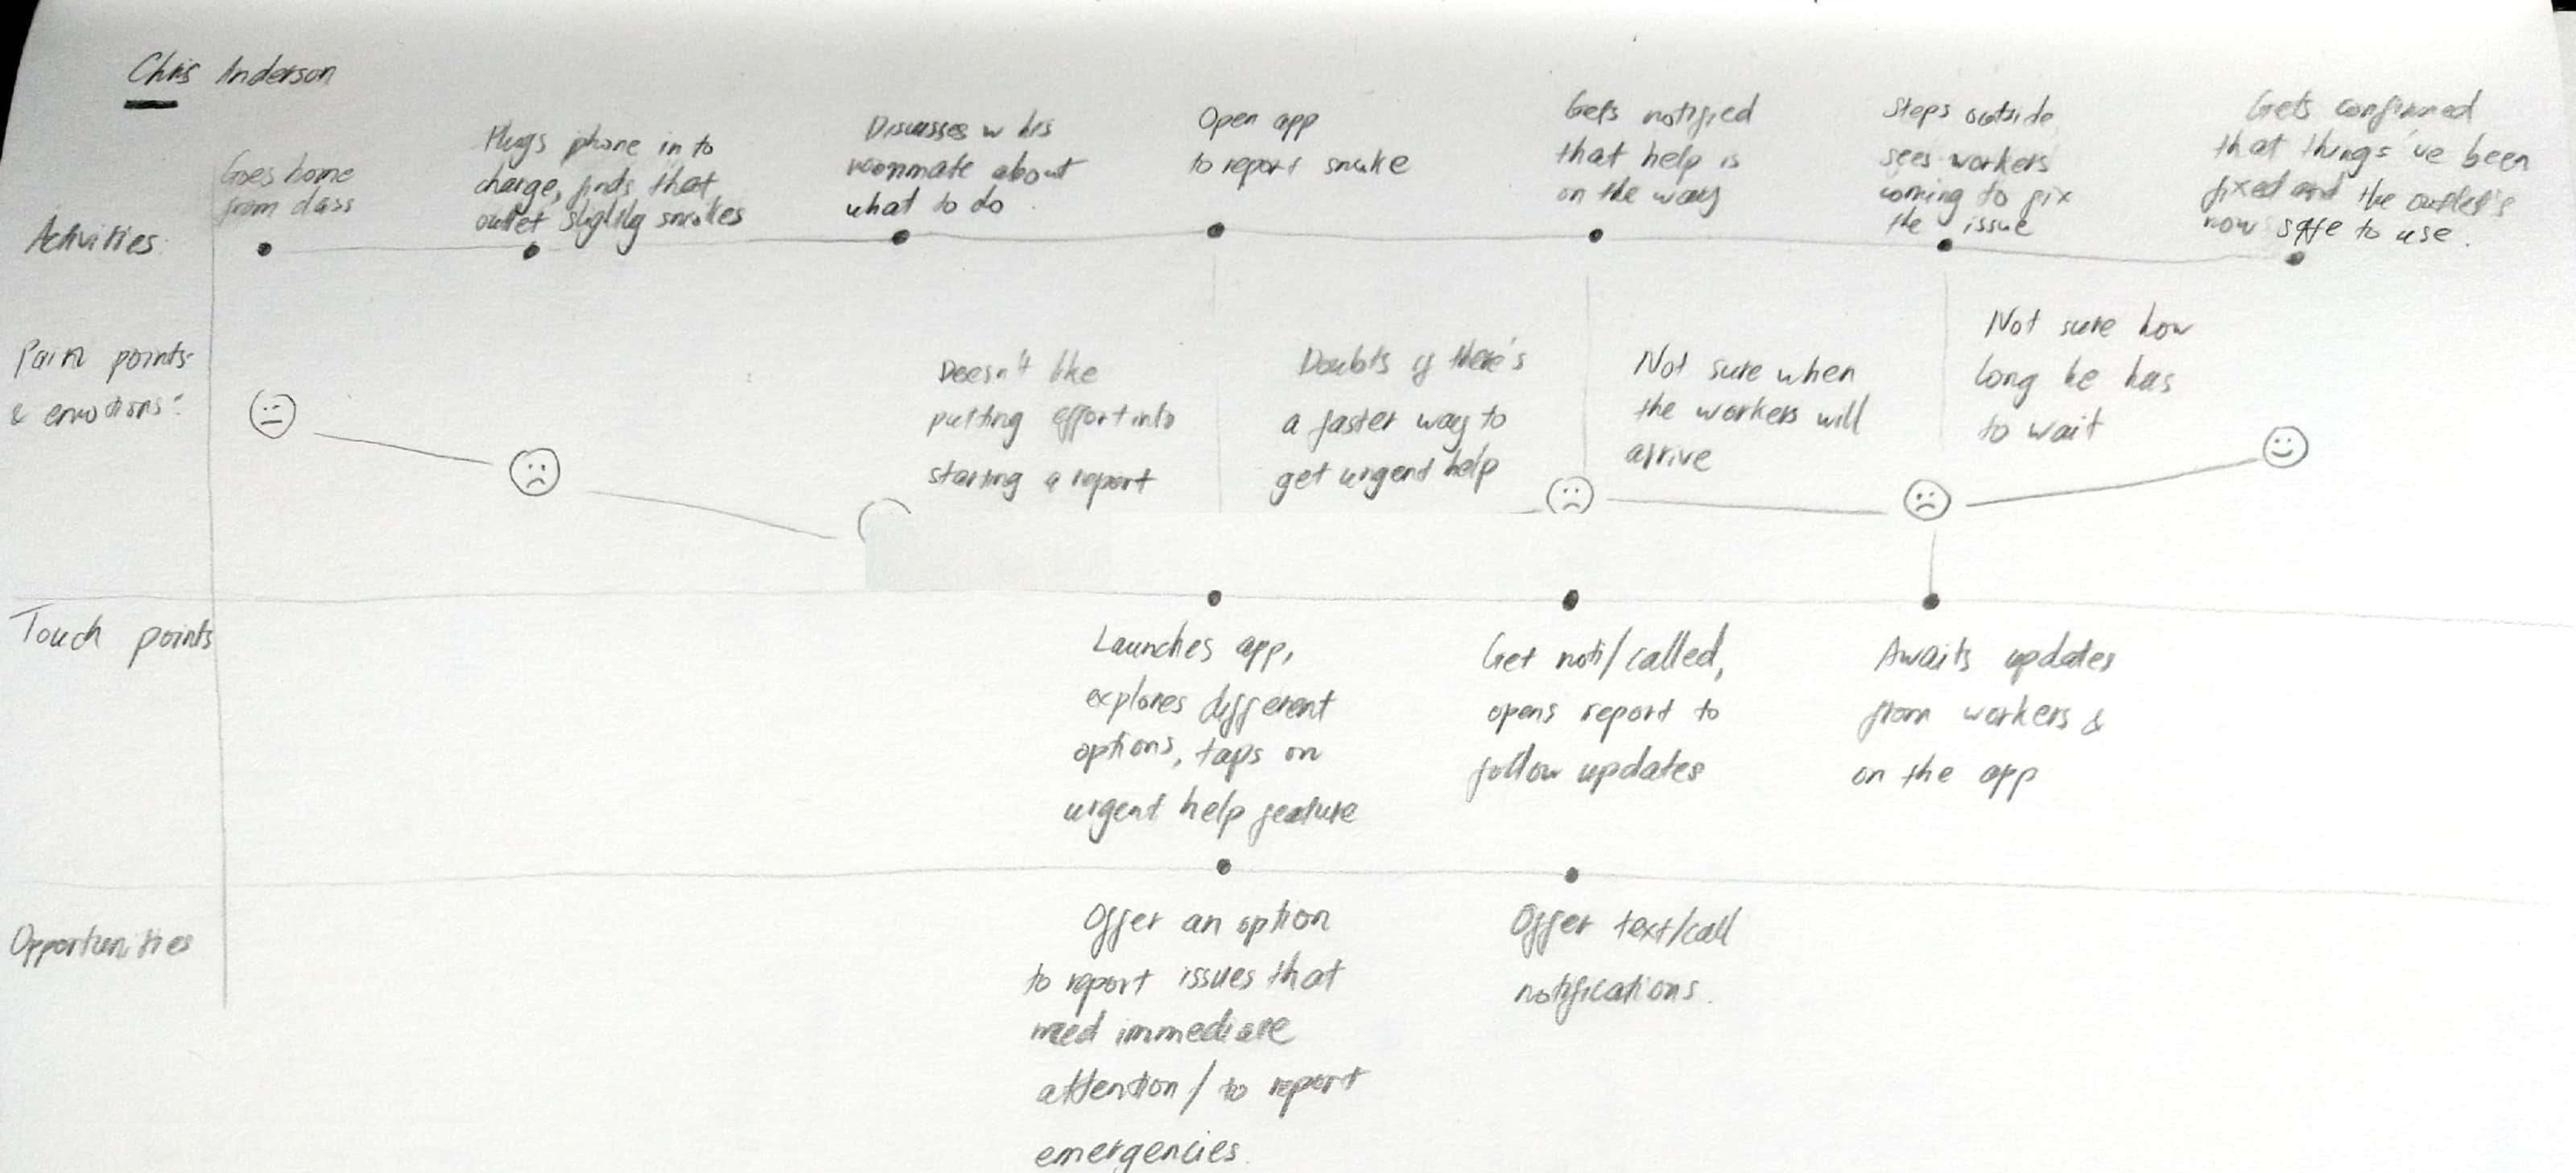 Chris Anderson
Activities:
Goes home
from class
Plugs phone in to
charge, finds that
outlet slightly smokes
Discusses w his
roommate about
what to do.
Open app
to report smoke
Gets notified
that help is
on the way
Steps outside
sees workers
coming to fix
the issue
Gets confirmed
that things've been
fixed and the outlet's
now safe to use.
Pain points
& emotions:
Doesn't like
putting effort into
starting a report
Doubts if there's
a faster way to
get urgent help
Not sure when
the workers will
arrive
Not sure how
long he has
to wait
Touch points
Launches app,
explores different
options, taps on
urgent help feature
Get noti/called,
opens report to
follow updates
Awaits updates
from workers &
on the app
Opportunities
Offer an option
to report issues that
need immediate
attention / to report
emergencies.
Offer text/call
notifications.